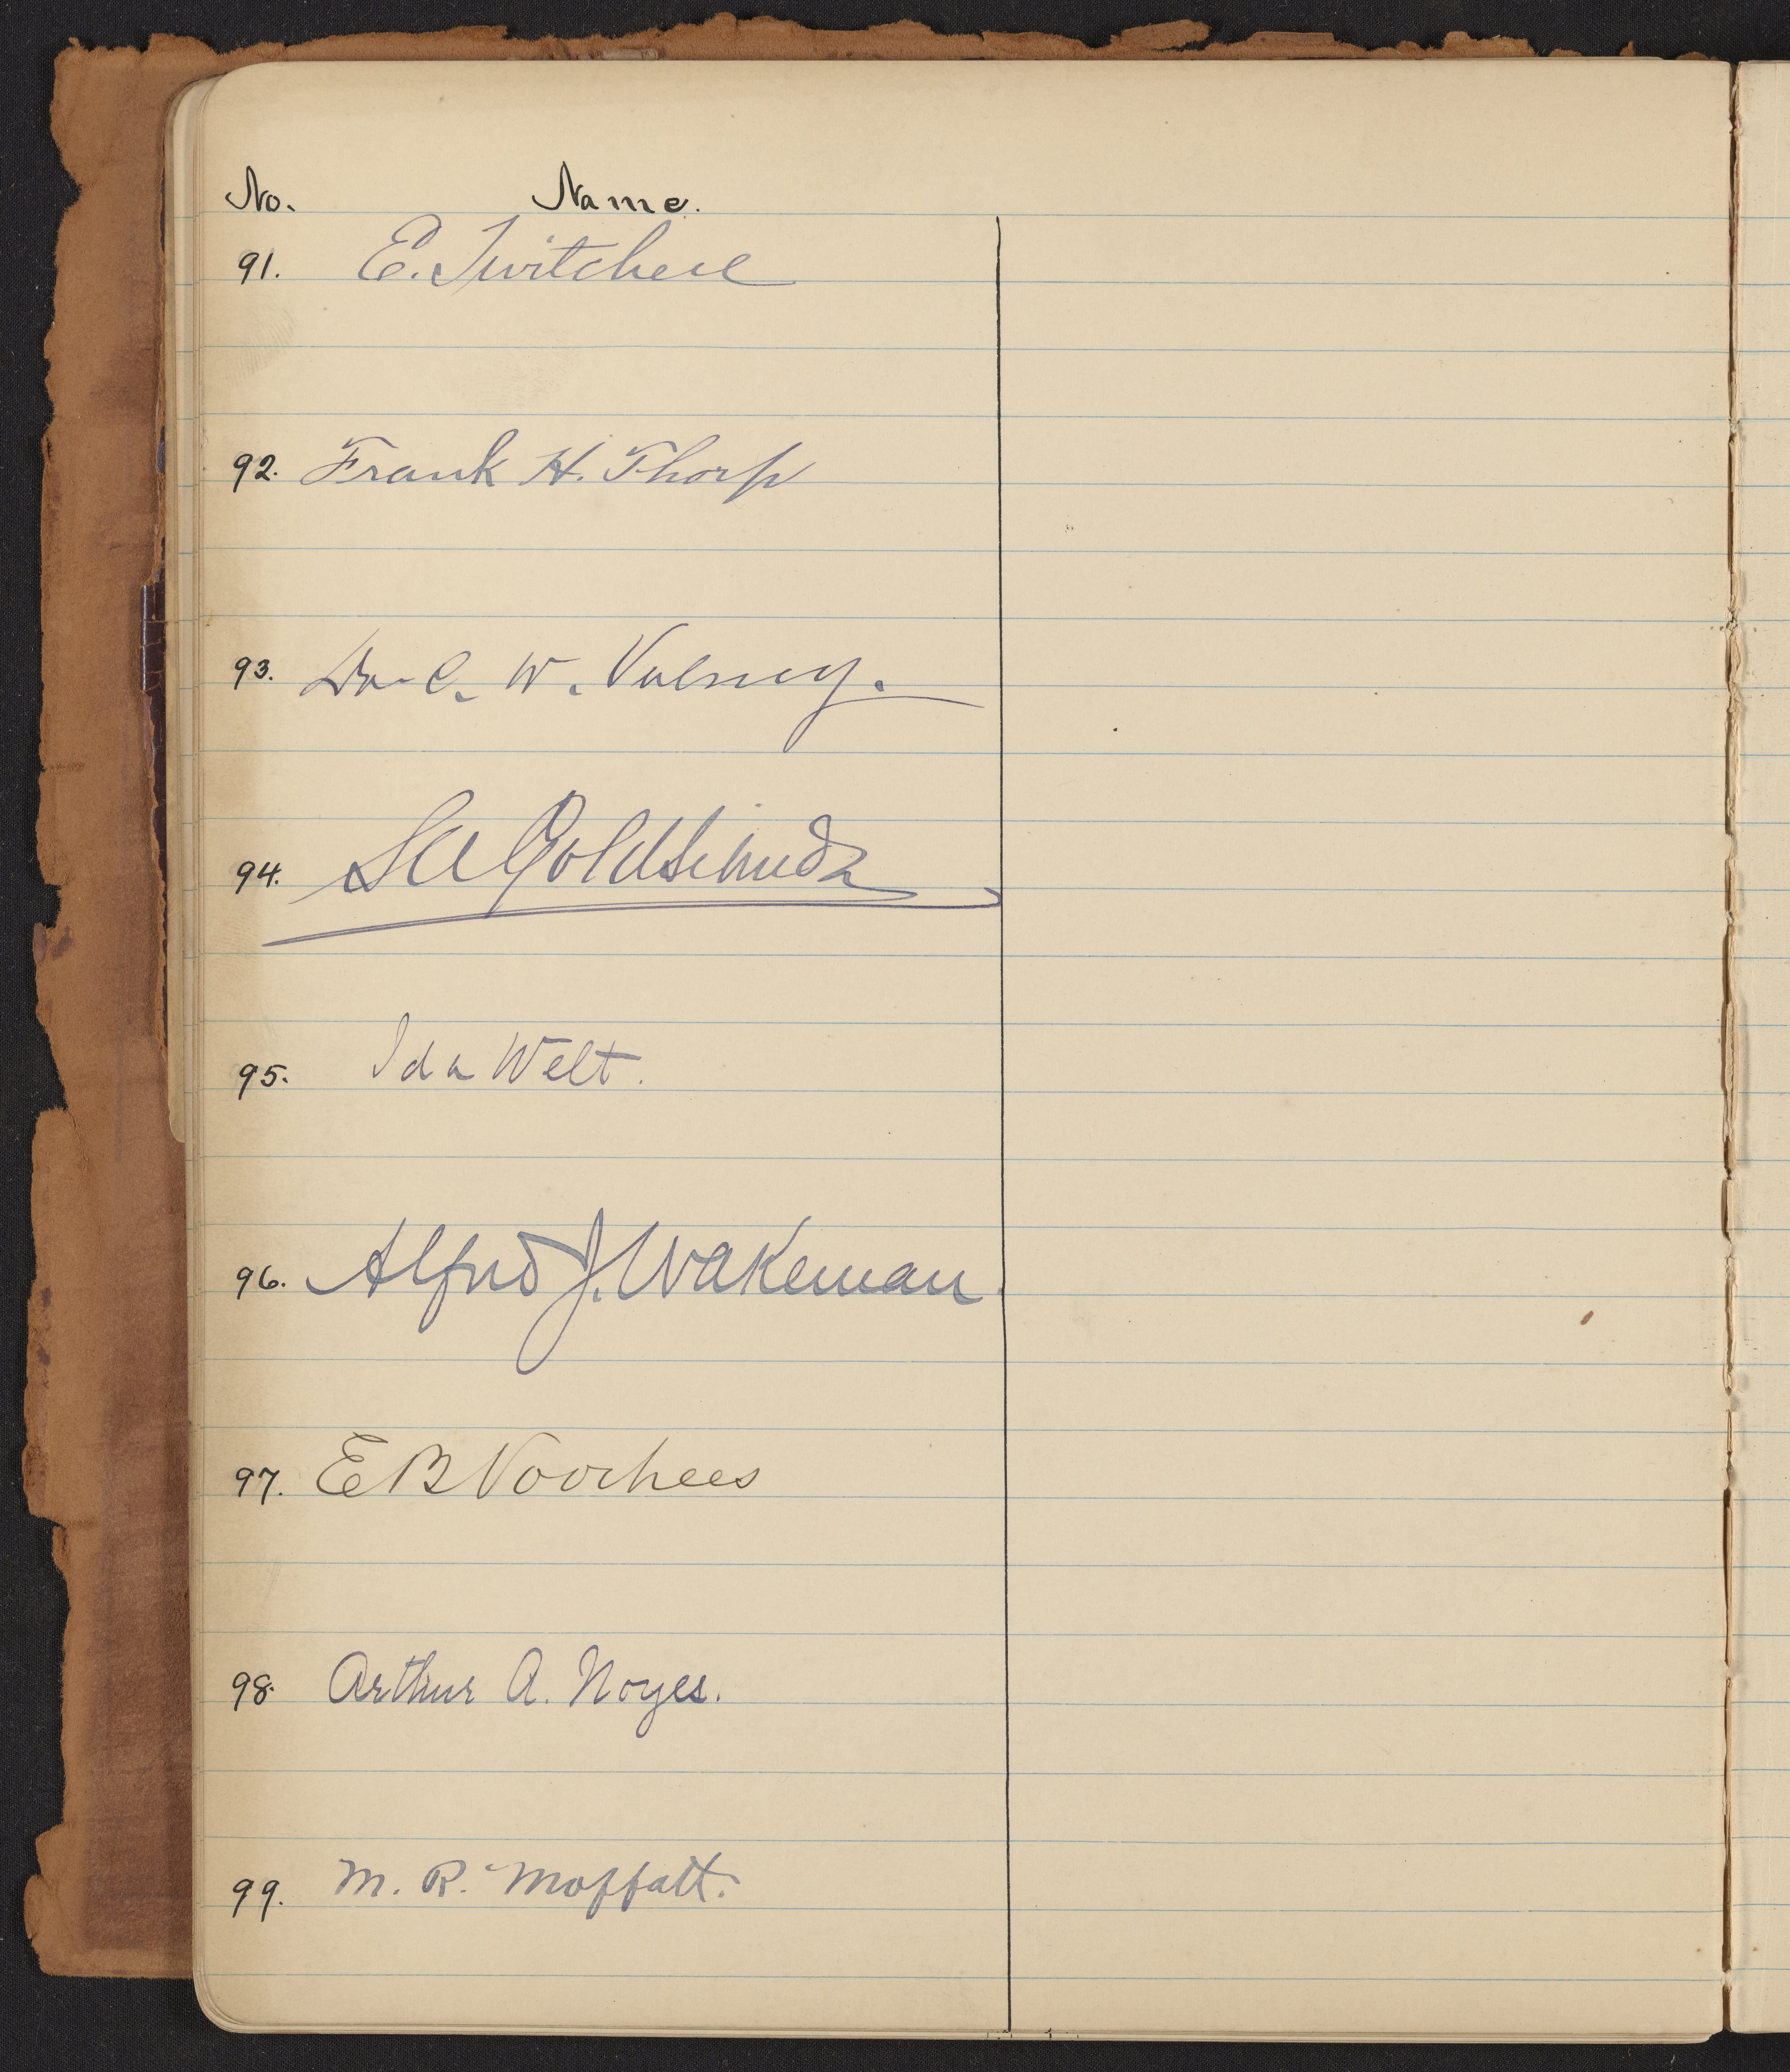 No. Name.
91. E. Twitchell
92. Frank H. Thorp
93. Dr. C. W. Volney.
94. S A Goldschmidt
95. Ida Welt.
96. Alfred J. Wakeman
97. E B Voorhees
98. Arthur A. Noyes.
99. M. R. Moffatt.